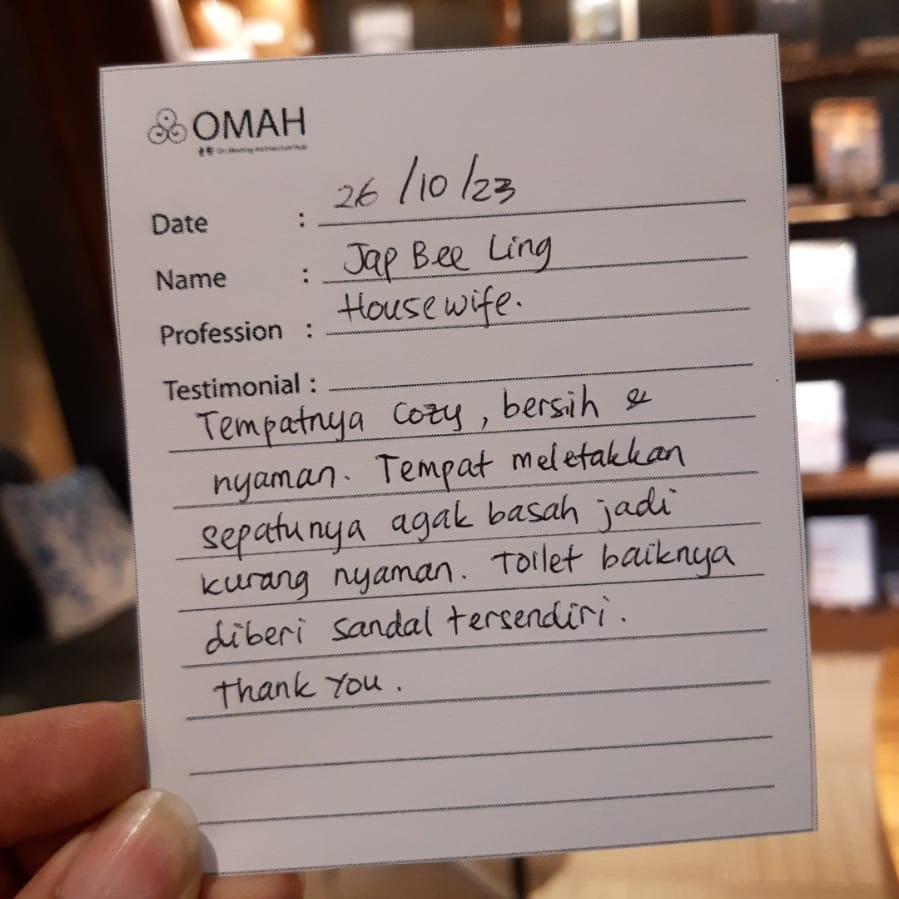 OMAH
Date : 26/10/23
Name : Jap Bee Ling
Profession : Housewife.
Testimonial :
Tempatnya cozy, bersih &
nyaman. Tempat meletakkan
sepatunya agak basah jadi
kurang nyaman. Toilet baiknya
diberi sandal tersendiri.
Thank You.